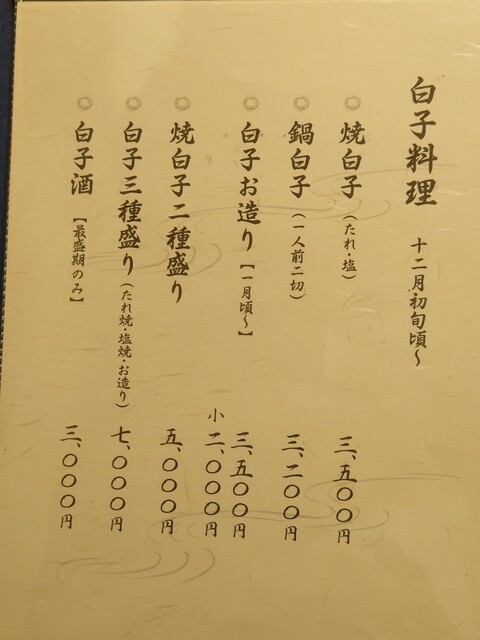 白子料理 十二月初旬頃〜
◎ 焼白子（たれ・塩） 三、五〇〇円
◎ 鍋白子（一人前二切） 三、二〇〇円
◎ 白子お造り【一月頃〜】 三、五〇〇円
小 二、〇〇〇円
◎ 焼白子二種盛り 五、〇〇〇円
◎ 白子三種盛り（たれ焼・塩焼・お造り） 七、〇〇〇円
◎ 白子酒【最盛期のみ】 三、〇〇〇円